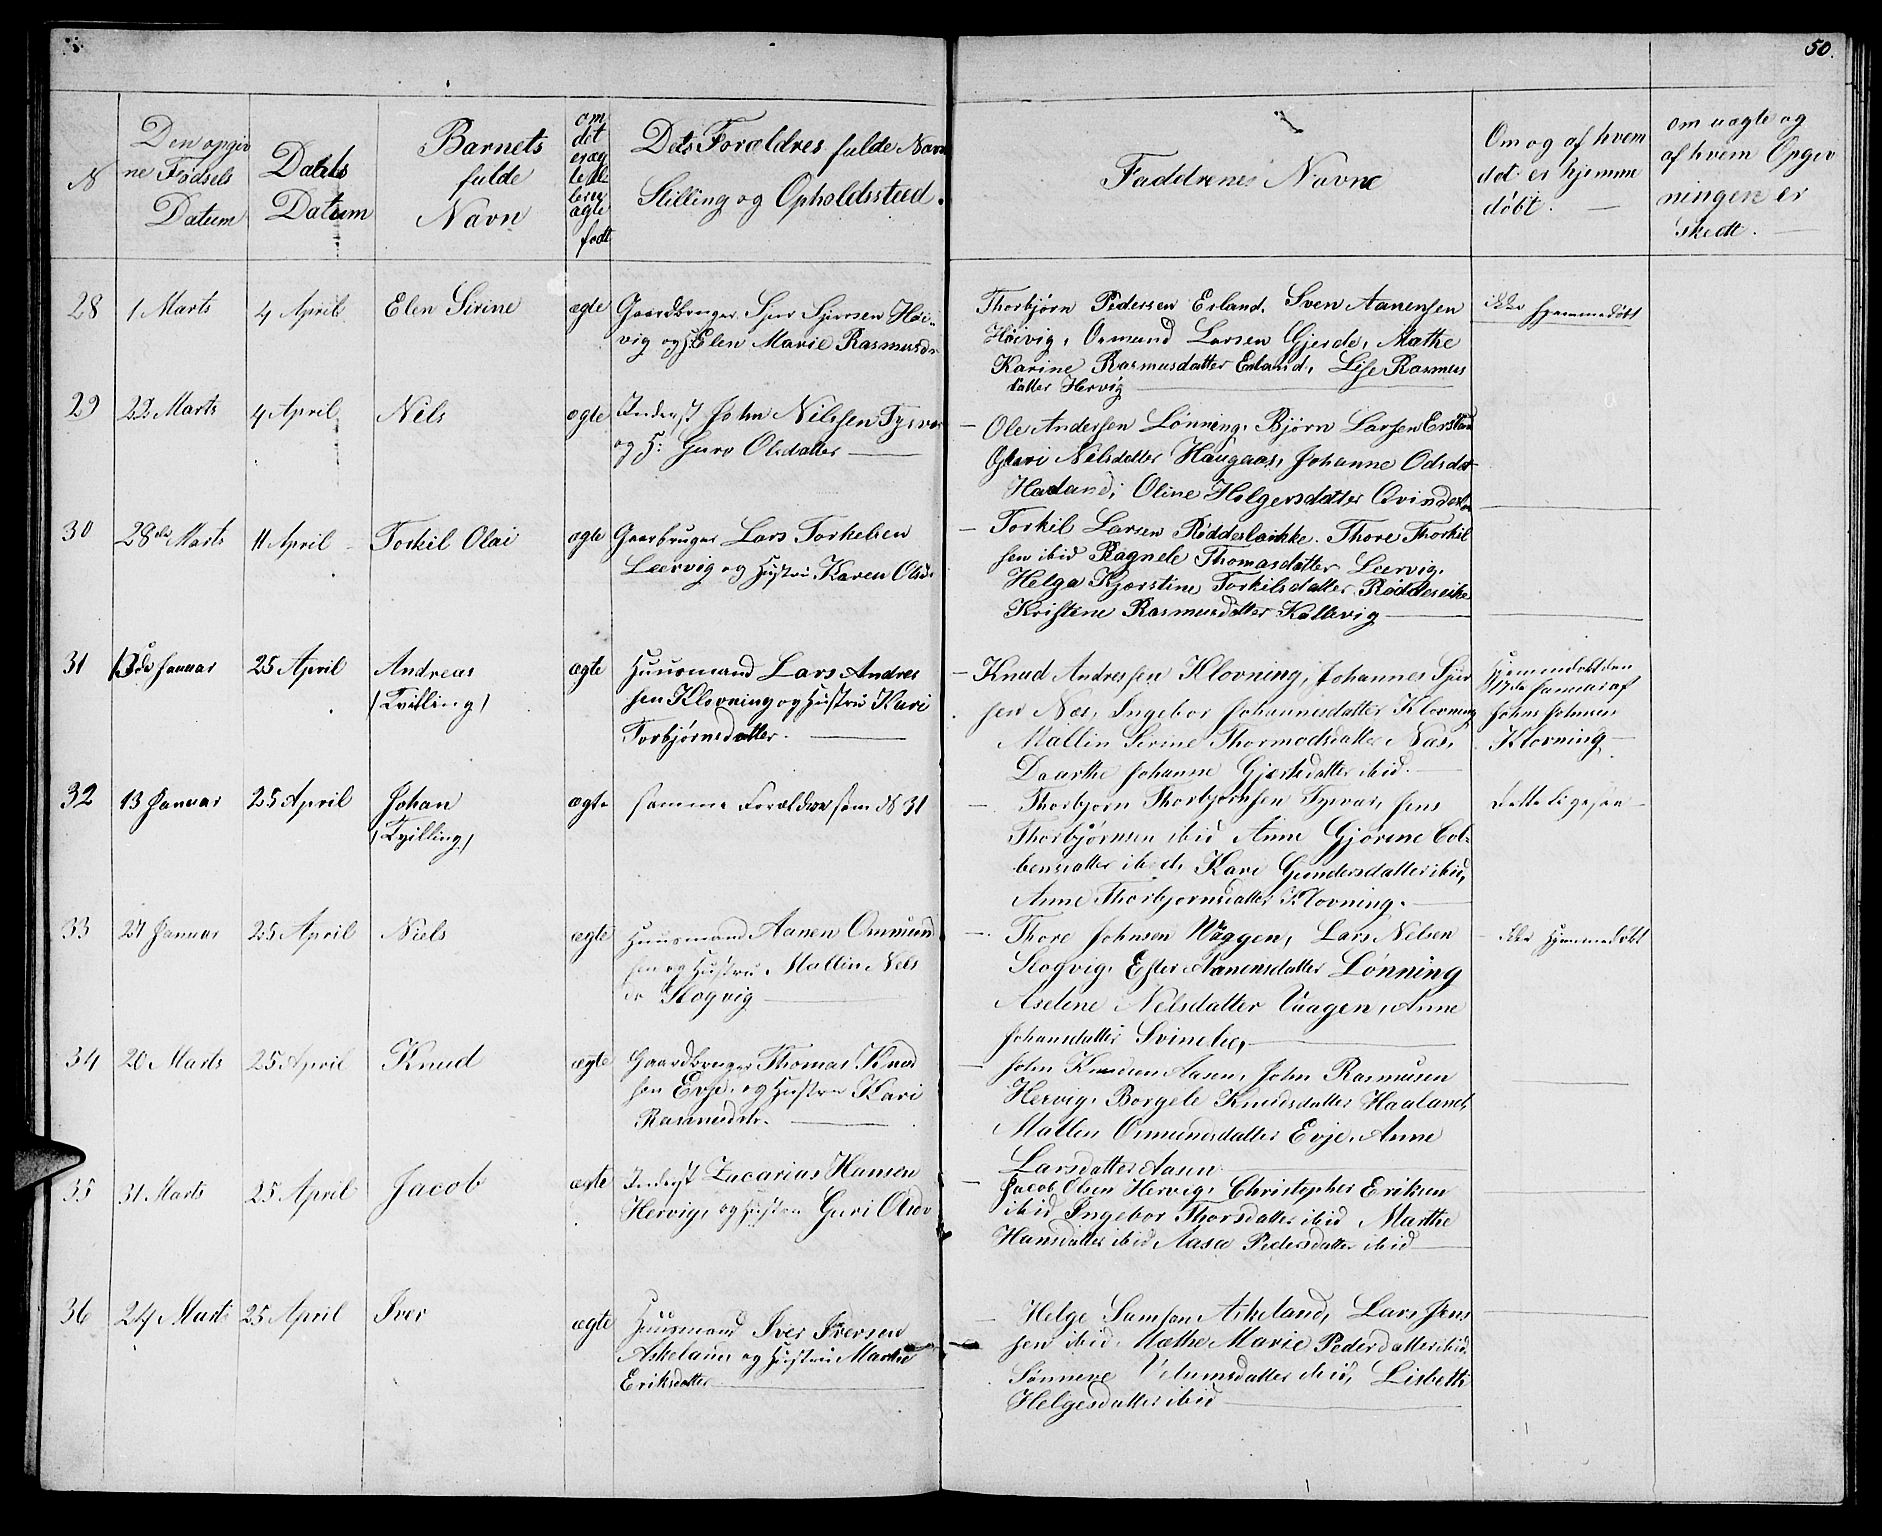 50.
N
Den opgiv
ne Fødsels
Datum
Daabs
Datum
Barnets
fulde
Navn
om
det
er æg
te ell
er u
ægte
født
Dets Forældres fulde Navn
Stilling og Opholdssted.
Faddrenes Navne
Om og af hvem
det er hjemme
døbt. —
om uægte og
af hvem Opgiv
ningen er
skedt. —
28 1 Marts 4 April Elen Sirine ægte Gaardbruger Sjur Sjursen Høi-
vig og H Elen Marie Rasmusdr
Thorbjørn Pedersen Erland. Sven Aanensen
Høivig, Ormund Larsen Gjerde, Mathe
Karine Rasmusdatter Erland, Lise Rasmus
datter Hervig —
ikke hjemmedøbt
29 22 Marts 4 April Nils ægte Inderst John Nilssen Tysvær
og H: Guro Olsdatter —
— Ole Andersen Lønning, Bjørn Larsen
Nilsdatter Haugaas, Johanne
Haaland, Oline Holgersdatter
30 28de Marts 11 April Torkil Olai ægte Gaarbruger Lars Torkelsen
Leervig og Hustru Karen Olsd.
— Torkil Larsen Thore Thorkil
sen ibid Ragnele Thomasdatter Leervig,
Helga Kjerstine Torkilsdatter
Kristene Rasmusdatter Kallevig —
31 13de Januar 25 April Andreas
/Tvilling/
ægte Huusmand Lars Andres
sen Klovning og Hustru Kari
Torbjørnsdatter. —
— Knud Andressen Klovning, Johannes Sjur
sen Næs, Ingebor Johannesdatter Klovning
Mallin Serine Thormodsdatter Næs,
Daarthe Johanne Gjertsdatter ibid. —
Hjemmedøbt den
17de Januar af
Johns Johnsen
Klovning —
32 13 Januar 25 April Johan
/Tvilling/
ægte samme Forældre som N 31
— Thorbjørn Thorbjørnsen Tysvær, Jens
Thorbjørnsen ibid Anne Gjørine Col-
bensdatter ibid, Kari Gundersdatter ibid,
Anne Thorbjørnsdatter Klovning. —
Dette ligesaa —
33 27 Januar 25 April Niels ægte Huusmand Aanen Ommund
sen og Hustru Mallin Nels
dr Slogvig —
— Thore Johnsen Waggen, Lars Nelsen
Slogvig, Ester Aanensdatter Lønning
Aselene Nelsdatter Vaagen, Anne
Johansdatter —
— ikke hjemmedøbt
34 20 Marts 25 April Knud ægte Gaardbruger Thomas Knud
sen Evje, og Hustru Kari
Rasmusdtr. —
— John Knudsen Aasen, John Rasmusen
Hervig, Borgele Knudsdatter Haaland,
Mallen Ommundsdatter Evje, Anne
Larsdatter Aasen
35 31 Marts 25 April Jacob ægte Inderst Zacarias Hansen
Hervig, og Hustru Guri Olsdr
— Jacob Olsen Hervig, Christopher Eriksen
ibid Ingebor Thorsdatter ibid Marthe
Hansdatter ibid Aasa Pedersdatter ibid —
36 24 Marts 25 April Iver ægte Huusmand Iver Iversen
Askeland og Hustru Marthe
Eriksdatter —
— Helge Samson Askeland, Lars Jens
sen ibid Mathe Marie Pedersdatter ibid
Sønneve ibid, Lisbeth
Helgesdatter ibid —